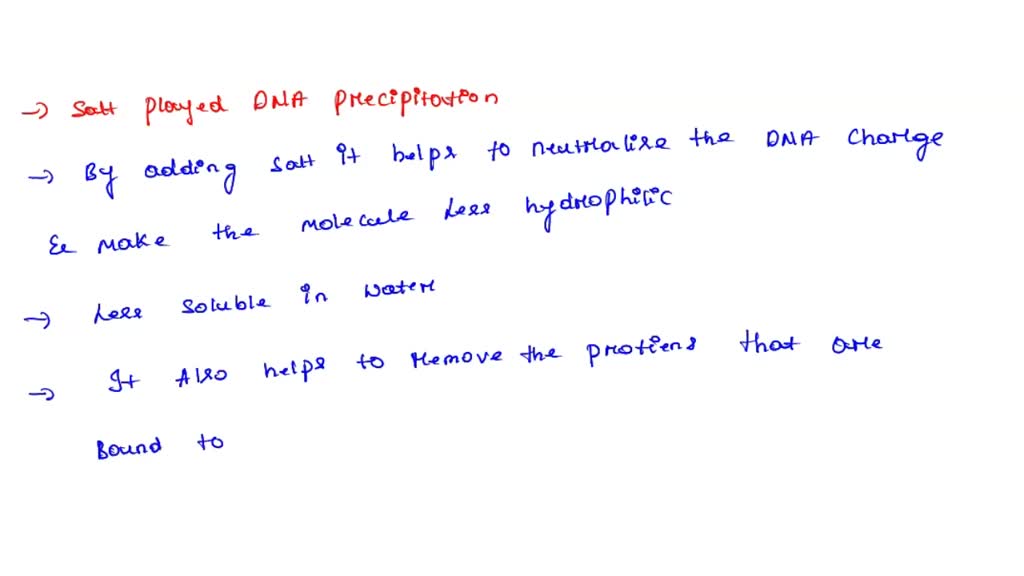 → Salt played DNA precipitation
→ By adding salt it helps to neutralise the DNA charge
& make the molecule less hydrophilic
→ Less soluble in water
→ It Also helps to remove the protiens that are
Bound to